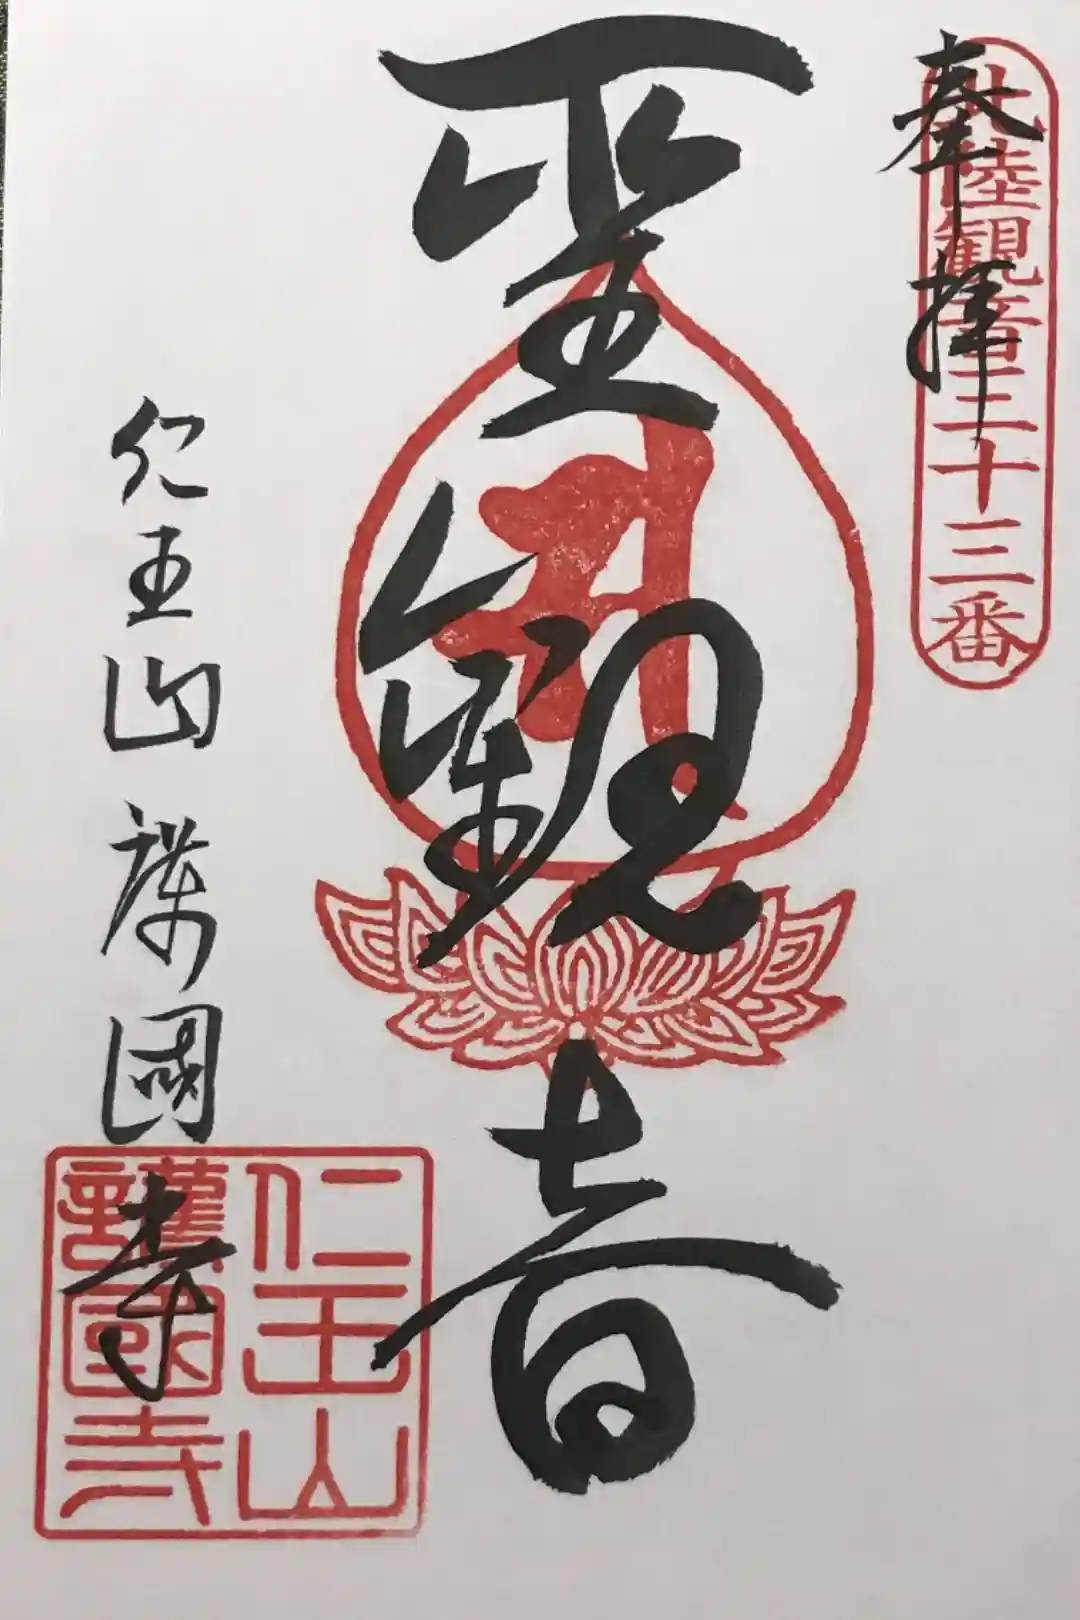 奉拝
北陸観音三十三番
聖観音
仁王山 護國寺
仁王山
護國寺